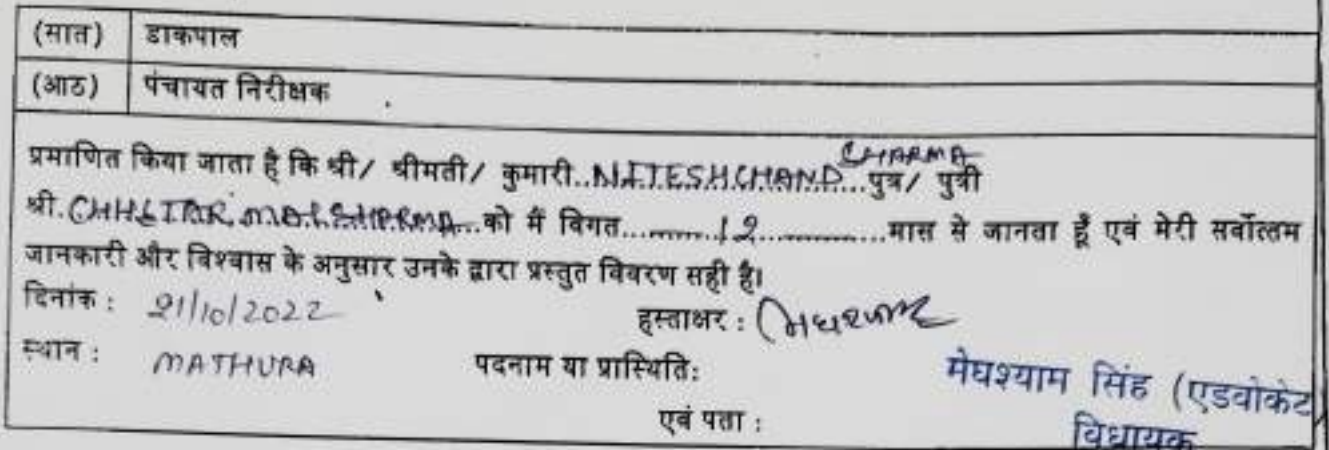 (सात) डाकपाल
(आठ) पंचायत निरीक्षक
CHARMA
प्रमाणित किया जाता है कि श्री/ श्रीमती/ कुमारी..NITESHCHAND...पुत्र/ पुत्री
श्री. CHHITAR MAL SHARMA...को मैं विगत.........12............मास से जानता हूँ एवं मेरी सर्वोत्तम
जानकारी और विश्वास के अनुसार उनके द्वारा प्रस्तुत विवरण सही है।
दिनांक : 21/10/2022 हस्ताक्षर :
स्थान : MATHURA पदनाम या प्रास्थिति: मेघश्याम सिंह (एडवोकेट
एवं पता : विधायक